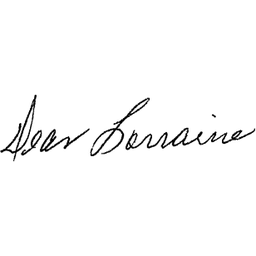 Dear Lorraine